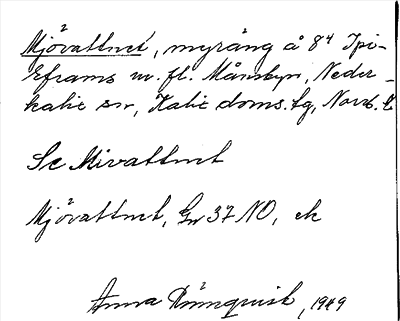 Mjövattnet, myräng å 8⁴ Ipi-
Eframs m. fl. Månsbyn, Neder-
kalix sn, Kalix doms. tg, Norrb. l.
Se Mivattnet
Mjövattnet, Gv 37 NO, ek
Anna Rönnquist, 1949